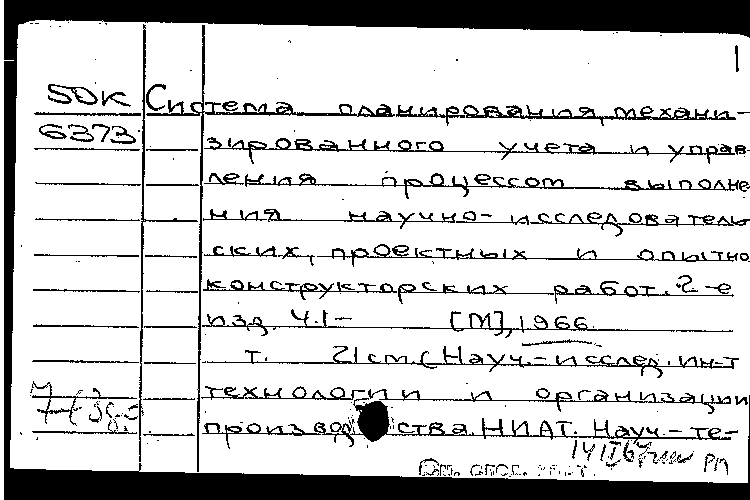 50К Система планирования, механи-
6373 зированного учета и управ
ления процессом выполне
ния научно-исследователь
ских, проектных и опытно
конструкторских работ. 2-е
изд. Ч.1- [М], 1966
т. 21 см. (Науч.-исслед. ин-т
технологии и организации
производства НИАТ. Науч.-те-
См. след. карт.